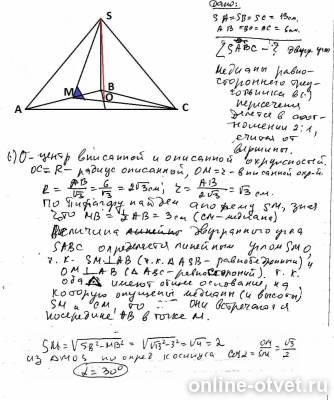 Дано:
SA=SB=SC=√13см.
AB=BC=AC=6см.
∠SABC-? двугр. угол
Медианы равно-
стороннего треу-
гольника в (.)
пересечения
делятся в соот-
ношении 2:1,
считая от
вершины.
S
M
B
O
A
C
О-центр вписанной и описанной окружностей.
OC=R-радиус описанной, OM=r-вписанной окр-й
R=AB/√3=6/√3=2√3см; r=AB/2√3=√3см.
По Пифагору найдём апофему SM, зная
что MB=½AB=3см (CM-медиана)
Величина двугранного угла
SABC определяется линейным углом SMO,
т.к. SM⊥AB (т.к. △ASB-равнобедренный), и
OM⊥AB (△ABC-равносторонний). Т.к.
оба △ имеют общее основание, на
которую опущены медианы (и высоты)
SM и CM, то Они встречаются
посередине AB в точке M.
SM=√SB²-MB²=√√13²-3²=√4=2
из △MOS по опред косинуса cosα=OM/SM=√3/2
α=30°
online-otvet.ru